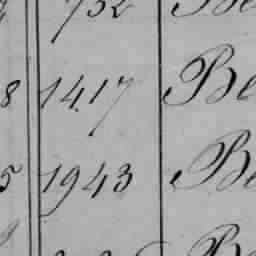 732 Be
8 1417 Be
5 1943 Be